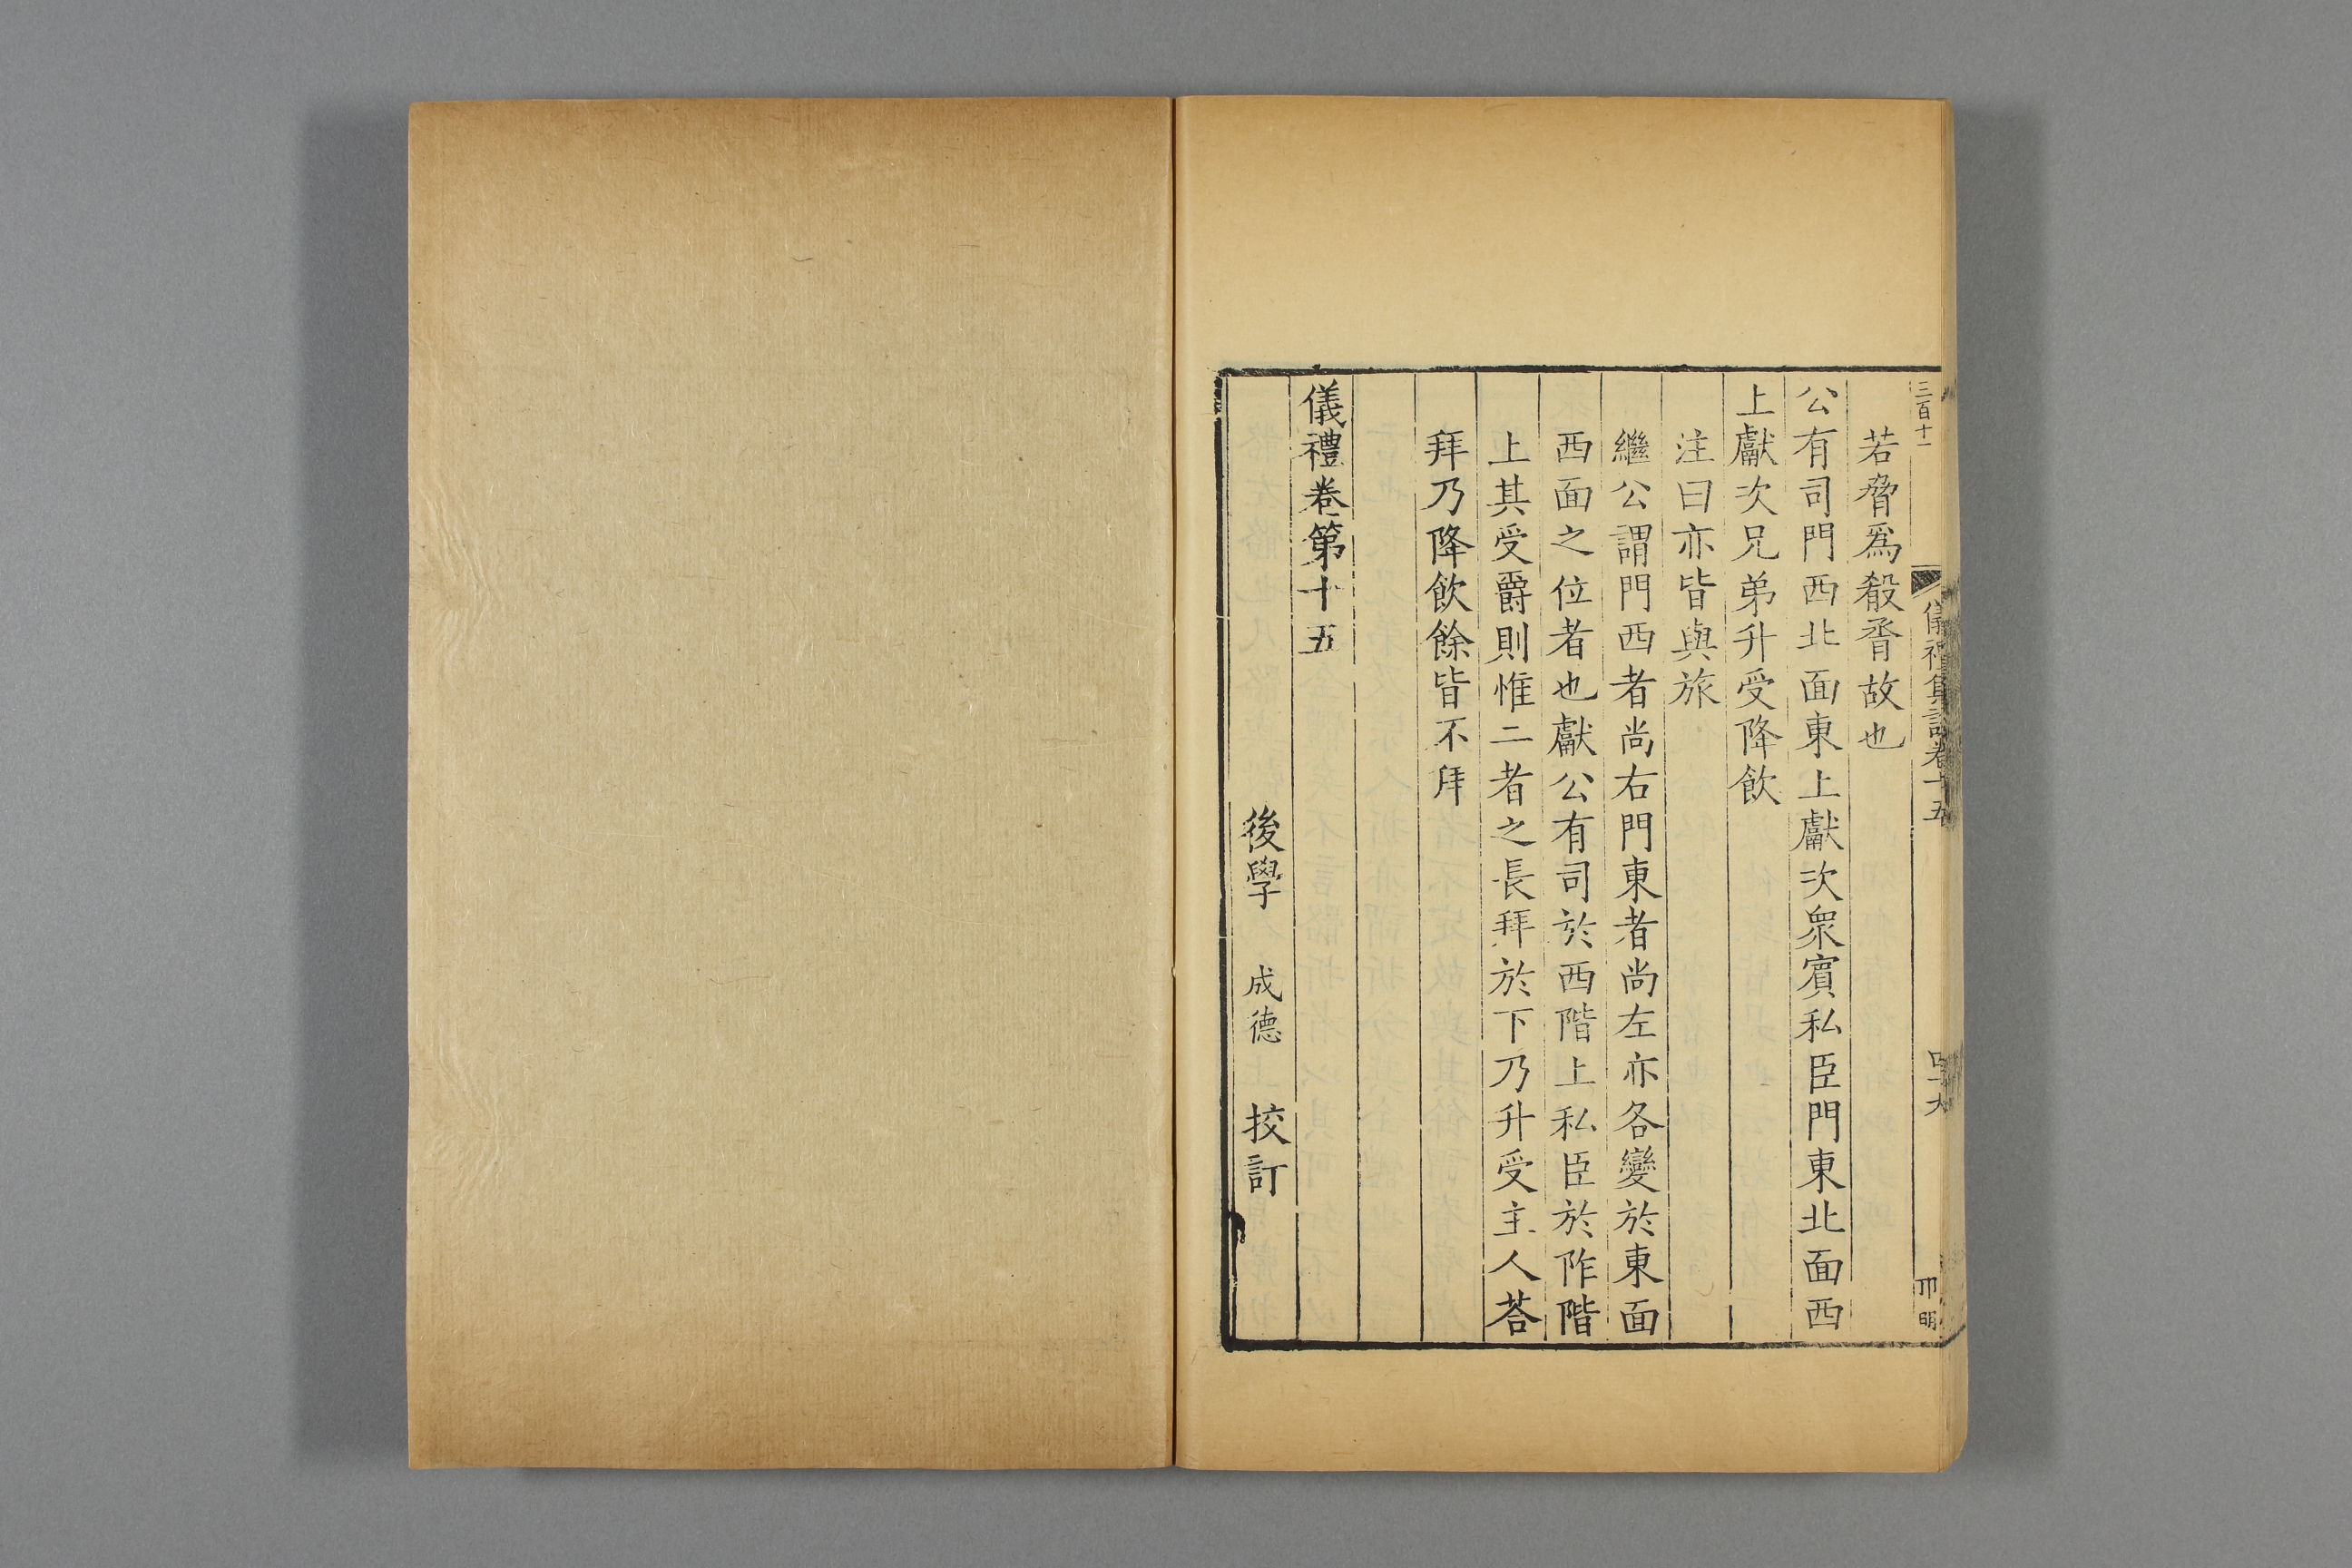 三百十一
儀禮集說卷十五
若脅爲殽脀故也
公有司門西北面東上獻次衆賓私臣門東北面西
上獻次兄弟升受降飲
注曰亦皆與旅
繼公謂門西者尚右門東者尚左亦各變於東面
西面之位者也獻公有司於西階上私臣於阼階
上其受爵則惟二者之長拜於下乃升受主人荅
拜乃降飲餘皆不拜
儀禮卷第十五
後學 成德 挍訂